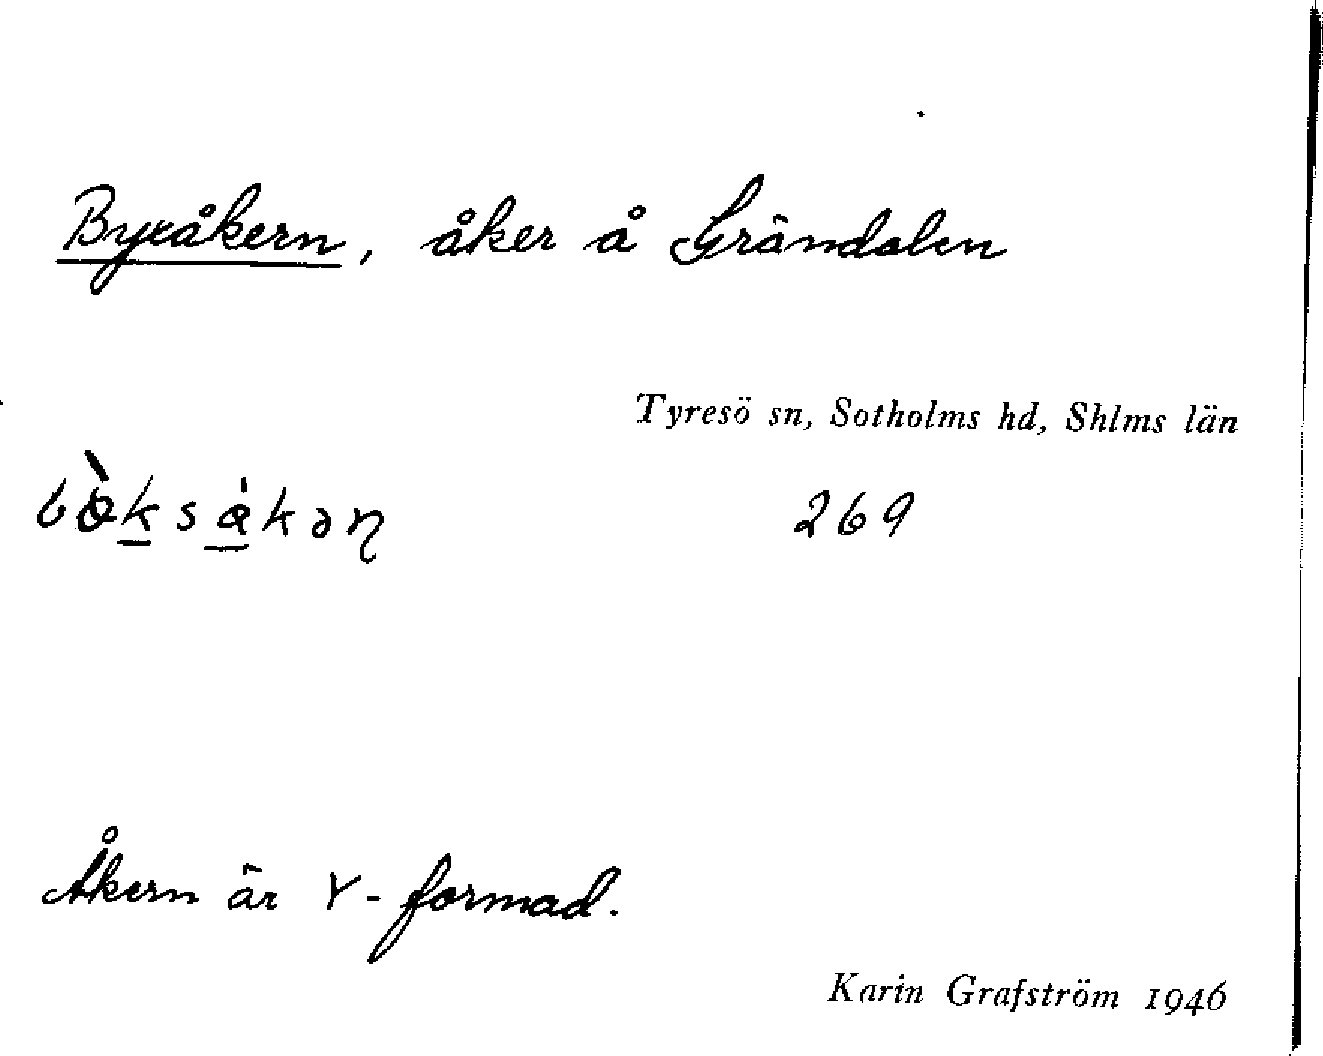 Byxåkern, åker å Grändalen
Tyresö sn, Sotholms hd, Shlms län
269
Åkern är Y-formad.
Karin Grafström 1946